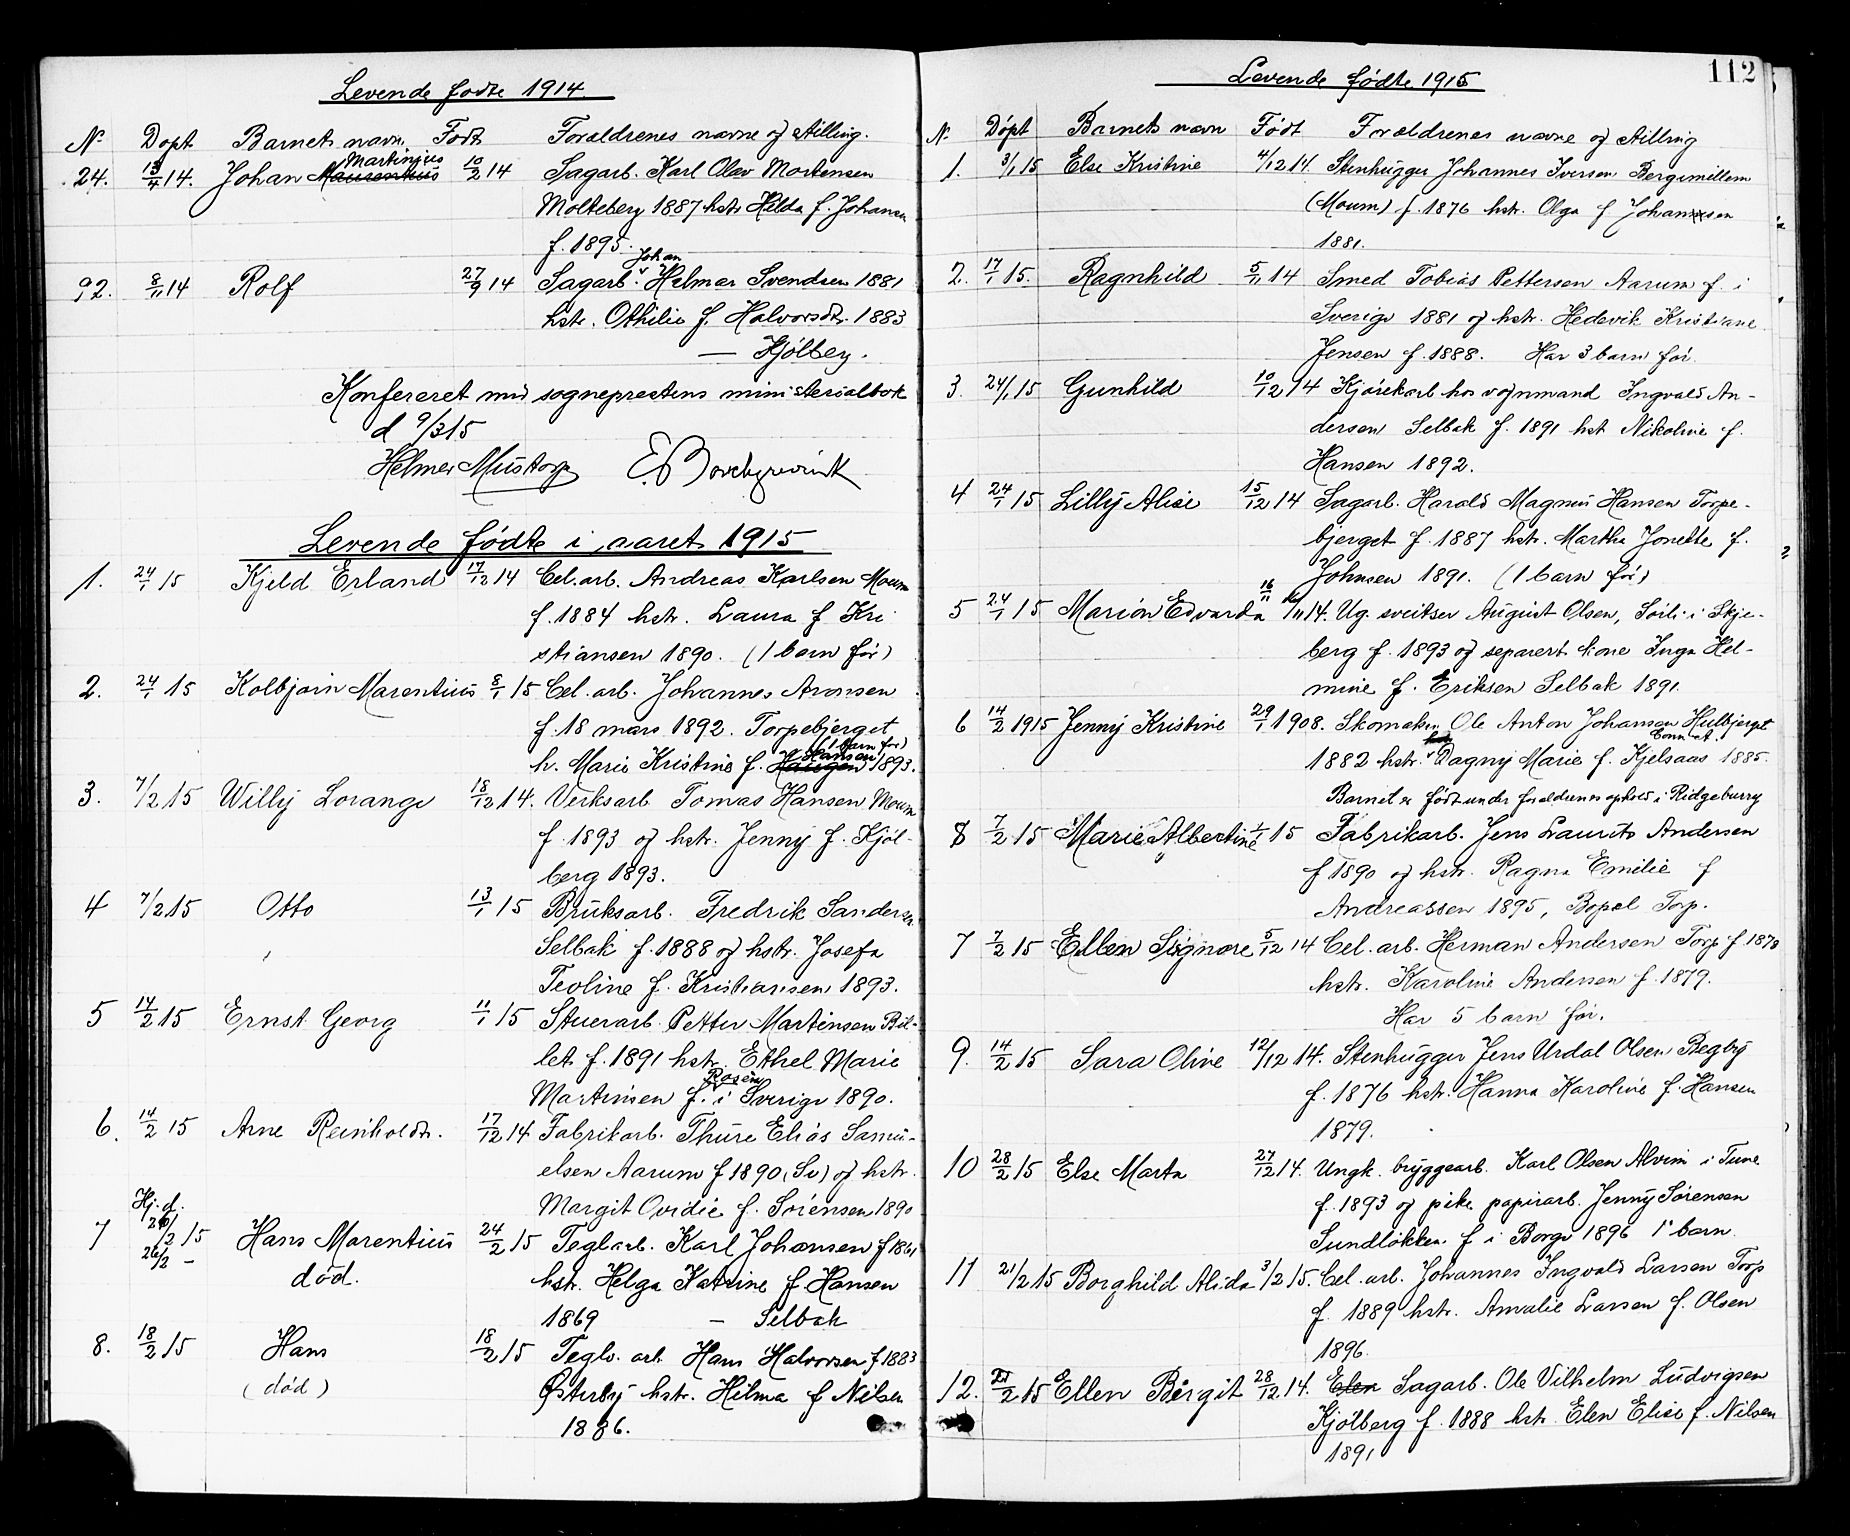 Levende fødte 1914.
N. Døpt Barnets navn Født Forældrenes navne og stilling.
Martinius
24. 13/4 14. Johan Maurentius 10/2 14 Sagarb. Karl Olav Mortensen
Molteberg 1887 hstr. Hilda f. Johansen
f. 1895.
Johan
92. 8/11 14 Rolf 27/9 14 Sagarb. Helmer Svendsen 1881
hstr. Othilie f. Halvorsdtr. 1883
— Kjølberg.
Konfereret med sogneprestens ministerialbok
d 9/3 15
Helmer Mustorp E. Borchgrevink
Levende fødte i aaret 1915
1. 24/1 15 Kjeld Erland 17/12 14 Cel. arb. Andreas Karlsen Moum
f. 1884 hstr. Laura f. Kri
stiansen 1890. (1 barn før)
2. 24/1 15 Kolbjørn Marentius 8/1 15 Cel. arb. Johannes Aronsen
f. 18 mars 1892. Torpebjerget
(1 barn før)
Hansen
h. Marie Kristine f. Haugen 1893.
3. 7/2 15 Willy Lorange 18/12 14. Verksarb. Tomas Hansen Moum
f. 1893 og hstr. Jenny f. Kjøl-
berg 1893.
4 7/2 15 Otto 13/1 15 Bruksarb. Fredrik Sandersen
Selbak f. 1888 og hstr. Josefa
Teoline f. Kristiansen 1893.
5 14/2 15 Ernst Georg 11/1 15 Stuerarb. Petter Martinsen Bil-
let f. 1891 hstr. Ethel Marie
Rosén
Martinsen f. i Sverige 1890.
6. 14/2 15 Arne Reinholdt. 17/12 14 Fabrikarb. Thure Elias Samu-
elsen Aarum f 1890 (Sv) og hstr.
Margit Ovidie f. Sørensen 1890
Hj. d.
7 26/2 15 Hans Marentius 24/2 15 Teglarb. Karl Johansen f 1861
26/2 – død. hstr. Helga Katrine f. Hansen
1869 — Selbak
8. 18/2 15 Hans 18/2 15 Teglv. arb. Hans Halvorsen f 1883
(død) Østerby hstr. Hilma f Nilsen
1886.
112
Levende fødte 1915
N. Døpt Barnets navn Født Forældrenes navne og stilling
1. 3/1 15 Else Kristine 4/12 14. Stenhugger Johannes Iversen Bergsmillem
(Moum) f. 1876 hstr. Olga f Johansen
1881.
2. 17/1 15. Ragnhild 5/11 14 Smed Tobias Pettersen Aarum f. i
Sverige 1881 og hstr. Hedevik Kristiane
Jensen f. 1888. Har 3 barn før.
3. 24/1 15 Gunhild 10/12 14 Kjørekarl hos vognmand Ingvald An-
dersen Selbak f. 1891 hst Nikoline f.
Hansen 1892.
4 24/1 15 Lilly Alise 15/12 14 Sagarb. Harald Magnus Hansen Torpe-
bjerget f. 1887 hstr. Martha Jonette f.
Johnsen 1891. (1 barn før)
16/11
5 24/1 15 Marion Edvarda 14. Ug. sveitser August Olsen, Soli i Skje-
berg f. 1893 og separert kone Inga Hel-
mine f. Eriksen Selbak 1891.
6 14/2 1915 Jenny Kristine 29/1 1908. Skomaker Ole Anton Johansen Hulbjerget
1882 hstr. Dagny Marie f. Kjelsaas 1885.
Barnet er født under forældrenes ophold i Ridgeburry
8 7/2 15 Marie Albertine 1/1 15 Fabrikarb. Jens Laurits Andersen
f 1890 og hstr. Ragna Emilie f
Andreassen 1895, Bopel Torp.
7 7/2 15 Ellen Signore 5/12 14 Cel. arb. Herman Andersen Torp f. 1878
hstr. Karoline Andersen f. 1879.
Har 5 barn før.
9. 14/2 15 Sara Oline 12/12 14. Stenhugger Jens Urdal Olsen Begby
f. 1876 hstr. Hanna Karoline f. Hansen
1879.
10 28/2 15 Else Marta 27/12 14. Ungk. bryggearb. Karl Olsen Alvim i Tune
f. 1893 og pike papirarb. Jenny Sørensen
Sundløkken f i Borge 1896 1' barn
11 21/2 15 Borghild Alida 3/2 15. Cel. arb. Johannes Ingvald Larsen Torp
f. 1889 hstr. Amalie Larsen f. Olsen
1896.
12. 21/2 15 Ellen Birgit 28/12 14. Elen Sagarb. Ole Vilhelm Ludvigsen
Kjølberg f. 1888 hstr. Elen Elise f. Nilsen
1891